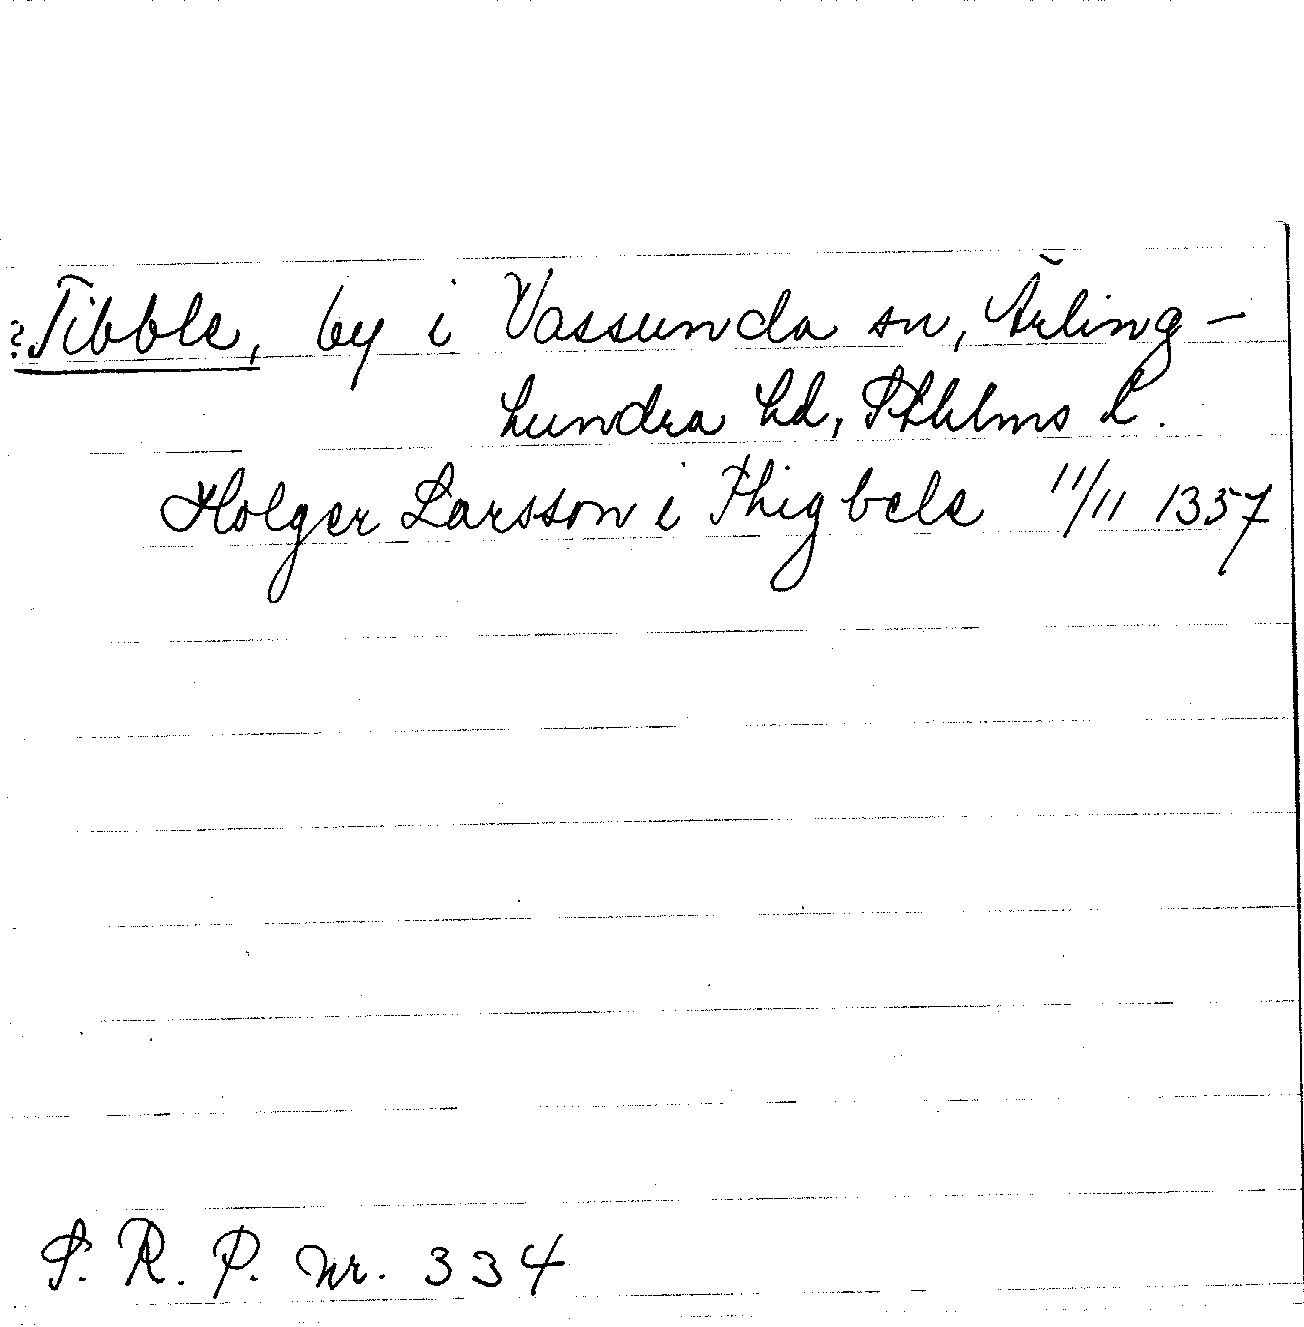 ?Tibble, by i Vassunda sn, Ärling-
hundra hd, Sthlms l.
Holger Larsson i Thigbele 11/11 1357
S. R. P. nr. 334